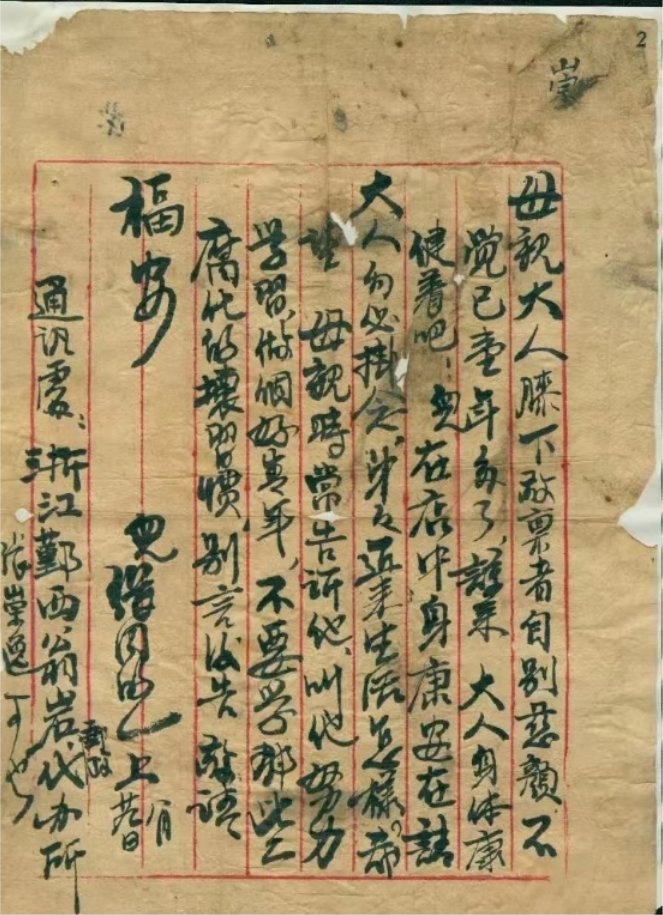 2
崇
母親大人膝下敬禀者自别慈顏不
覺已壹年多了諒來 大人身体康
健着吧!兒在店中身康安在請
大人勿必掛念,弟々近来生活怎樣?都
望 母親時常告訴他,叫他努力
学習,做個好青年,不要学那些
腐化的壞習慣,别言後告 敬請
福安
兒 上 八月
通訊處:浙江鄞西翁岩代办所
郵政
張崇逸 可也